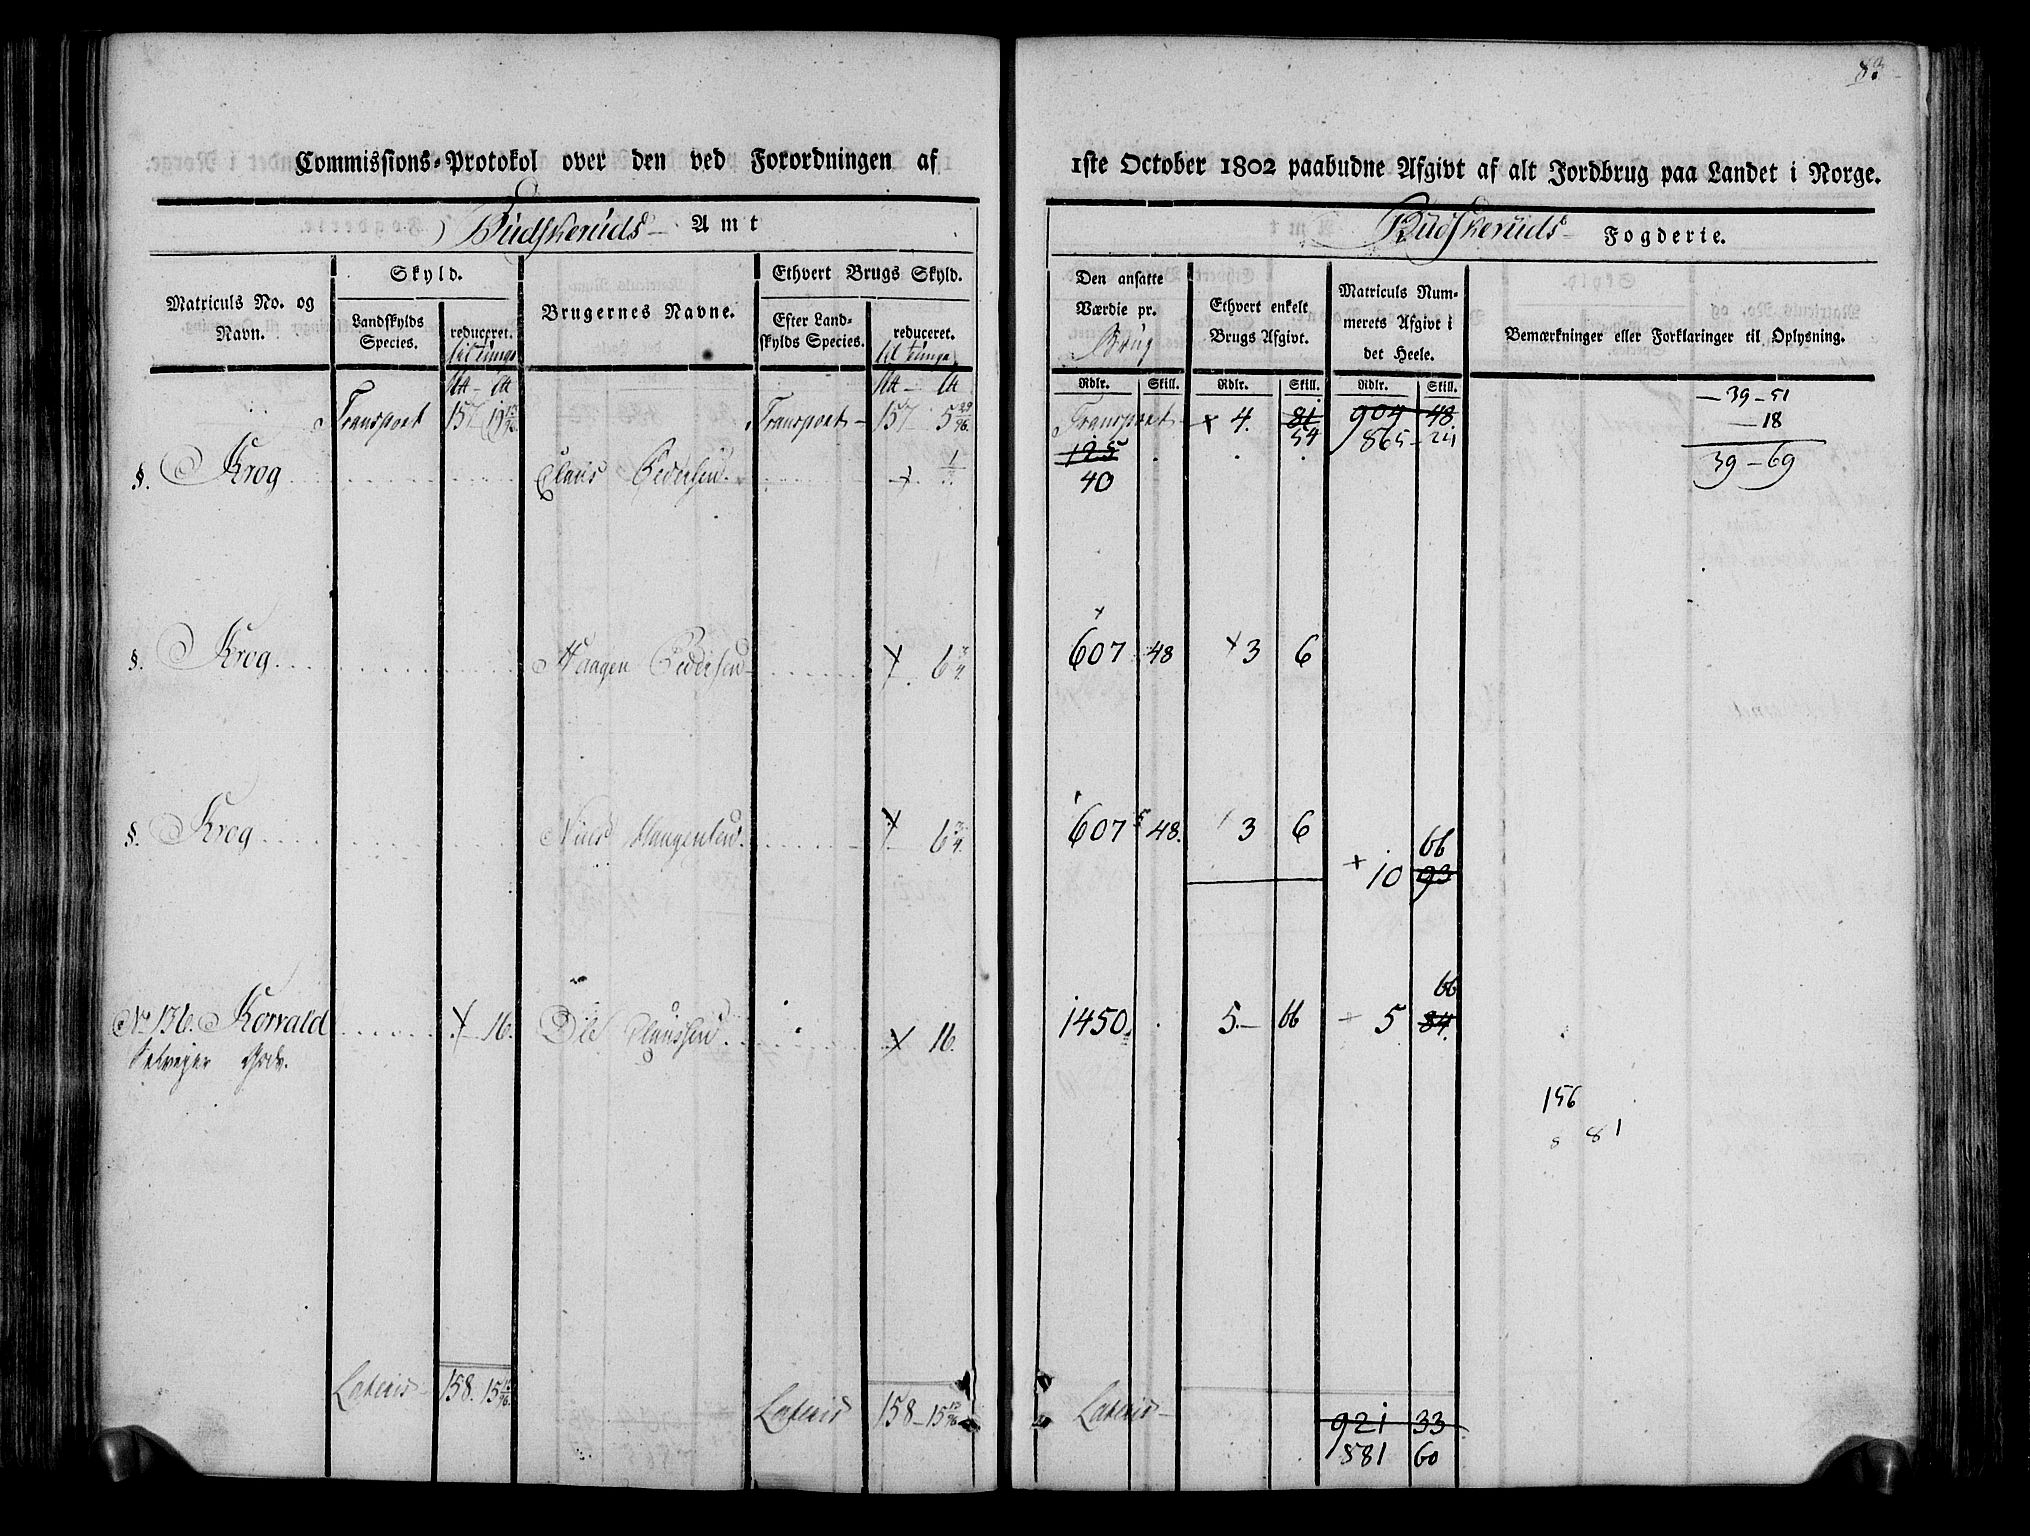 83
Commissions-Protokol over den ved Forordningen af
1ste October 1802 paabudne Afgivt af alt Jordbrug paa Landet i Norge.
Budskeruds Amt
Budskeruds Fogderie.
Matriculs No. og Navn.
Skyld.
Landskylds Species.
reduceret.
til tunge
Brugernes Navne.
Ethvert Brugs Skyld.
Efter Landskylds Species.
reduceret.
til tunge
Den ansatte Værdie pr. Brug
Ethvert enkelt Brugs Afgivt.
Matriculs Nummerets Afgivt i det Heele.
Bemærkninger eller Forklaringer til Oplysning.
Rdlr. Skill. Rdlr. Skill. Rdlr. Skill.
Transport 157 19 Transport 157 5 29/96
Transport 4. 81 904 48.
54 865 24
39 - 51
18
39 - 69
§. Krog Claus Pedersen
125
40
§. Krog Haagen Pedersen 6 3/4 607 48 3 6
§. Krog Niels Haagensen 6 3/4 607 48. 3 6
66
10 93
66
No 136. Korvald 16. Ole Claussen 16. 1450 5 66 5 84
Selvejer Gods.
156
8 81
Lateris 158. 15 Lateris 158 15
Lateris 921 33
881 60